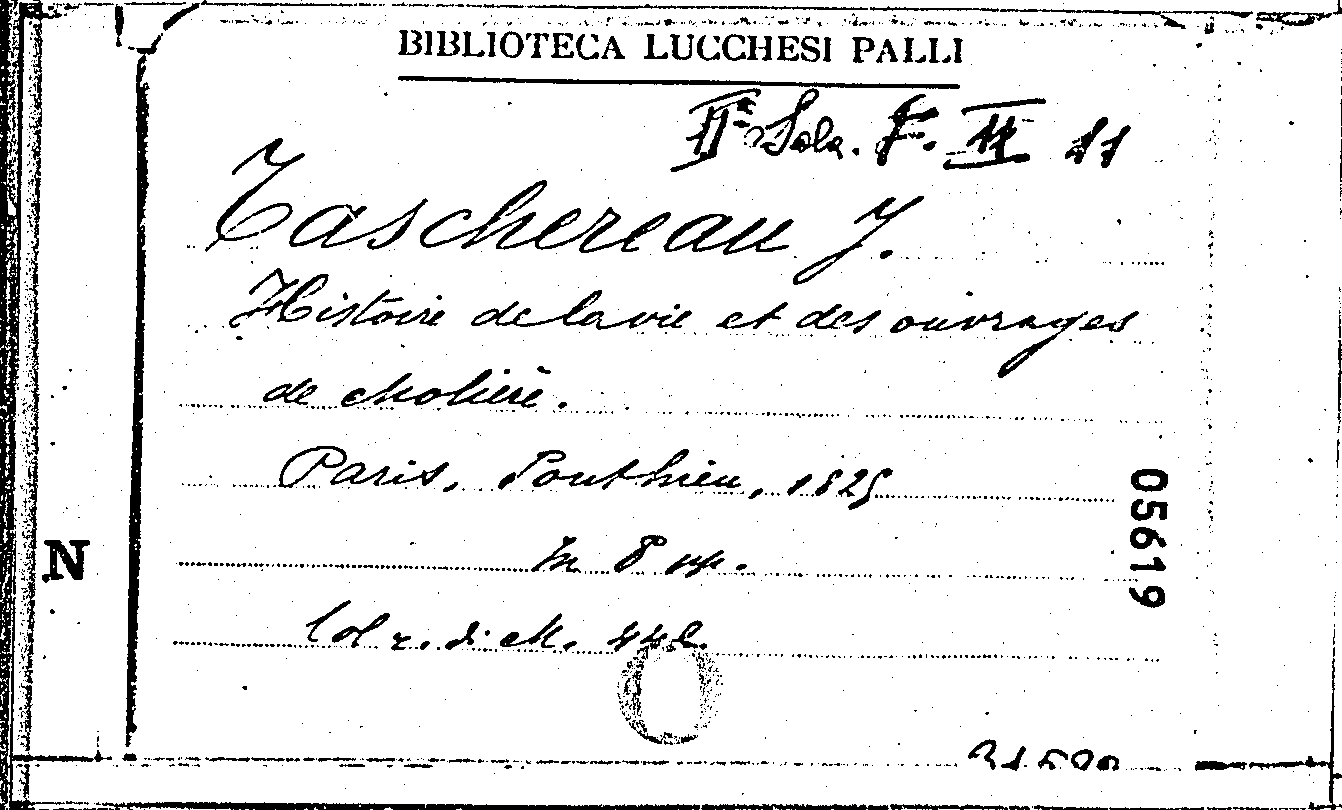 BIBLIOTECA LUCCHESI PALLI
IIª Sala. F. II 11
Taschereau J.
Histoire de la vie et des ouvrages
de Molière.
Paris, Ponthieu, 1825
In 8
N
05619
Col r. di M. 448.